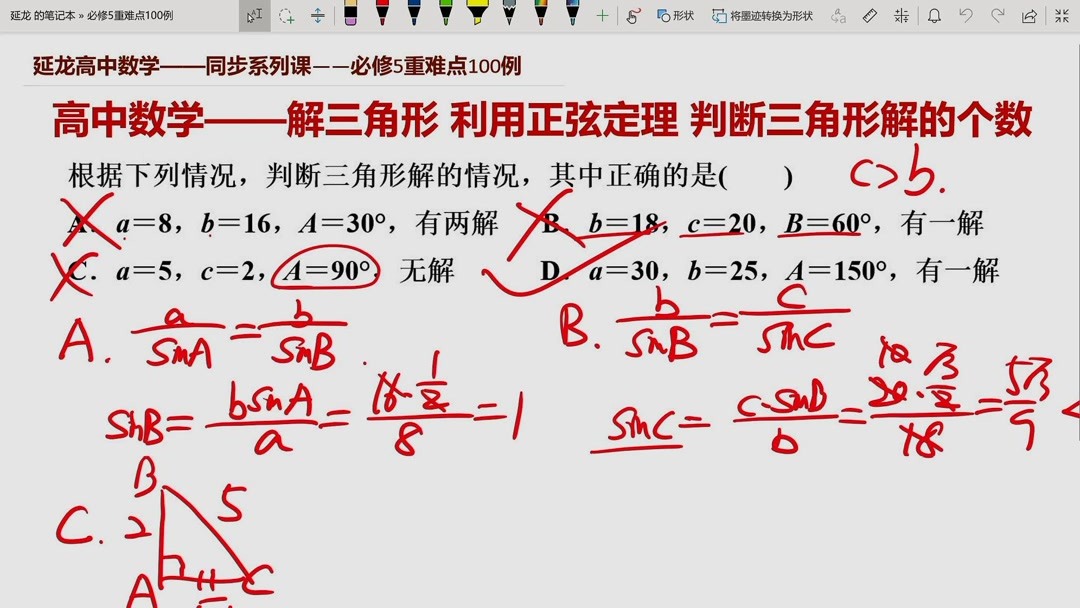 延龙 的笔记本 » 必修5重难点100例
形状 将墨迹转换为形状
延龙高中数学——同步系列课——必修5重难点100例
高中数学——解三角形 利用正弦定理 判断三角形解的个数
根据下列情况，判断三角形解的情况，其中正确的是( )
c>b.
A．a=8，b=16，A=30°，有两解 B．b=18，c=20，B=60°，有一解
C．a=5，c=2，A=90°，无解 D．a=30，b=25，A=150°，有一解
A. a/sinA = b/sinB .
B. b/sinB = c/sinC
sinB= bsinA/a = 16·1/2/8 =1
sinC= c·sinB/b = 20·√3/2/18 = 5√3/9 <
C. B 2 5
A C